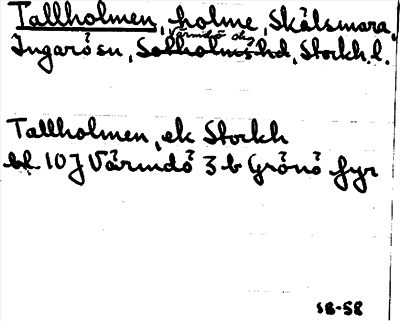 Tallholmen, holme, Skälsmara,
Värmdö skg
Ingarö sn, Sotholms hd, Stockh. l.
Tallholmen, ek Stockh
bl. 10 J Värmdö 3 b Grönö fyr
SB-58